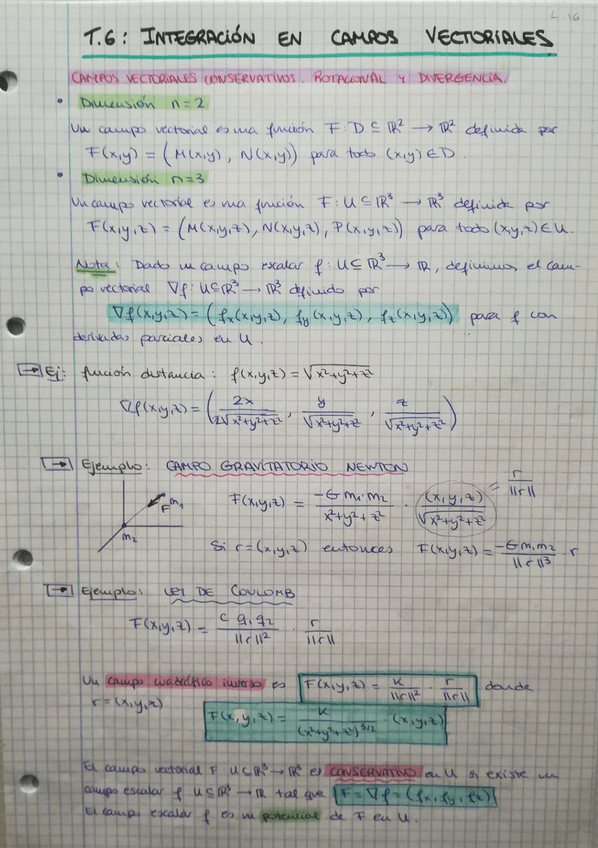 L. 16
T.6: INTEGRACIÓN EN CAMPOS VECTORIALES
CAMPOS VECTORIALES CONSERVATIVOS. ROTACIONAL Y DIVERGENCIA.
• Dimensión n=2
Un campo vectorial es una función F: D ⊆ ℝ² → ℝ² definida por
F(x,y) = (M(x,y), N(x,y)) para todo (x,y) ∈ D.
• Dimensión n=3
Un campo vectorial es una función F: U ⊆ ℝ³ → ℝ³ definida por
F(x,y,z) = (M(x,y,z), N(x,y,z), P(x,y,z)) para todo (x,y,z) ∈ U.
Nota: Dado un campo escalar f: U ⊆ ℝ³ → ℝ, definimos el cam-
po vectorial ∇f: U ⊆ ℝ³ → ℝ³ definido por
∇f(x,y,z) = (fx(x,y,z), fy(x,y,z), fz(x,y,z)) para f con
derivadas parciales en U.
→ Ej: función distancia: f(x,y,z) = √x²+y²+z²
∇f(x,y,z) = (2x / 2√x²+y²+z², y / √x²+y²+z², z / √x²+y²+z²)
→ Ejemplo: CAMPO GRAVITATORIO NEWTON
F m₁ m₂
F(x,y,z) = -G m₁ m₂ / x²+y²+z² · (x,y,z) / √x²+y²+z² = r / ||r||
Si r=(x,y,z) entonces F(x,y,z) = -G m₁ m₂ / ||r||³ · r
→ Ejemplo: LEY DE COULOMB
F(x,y,z) = c q₁ q₂ / ||r||² · r / ||r||
Un campo cuadrático inverso es F(x,y,z) = K / ||r||² · r / ||r|| donde
r=(x,y,z)
F(x,y,z) = K / (x²+y²+z²)^3/2 · (x,y,z)
El campo vectorial F: U ⊆ ℝ³ → ℝ³ es CONSERVATIVO en U si existe un
campo escalar f: U ⊆ ℝ³ → ℝ tal que F = ∇f = (fx, fy, fz)
El campo escalar f es un potencial de F en U.